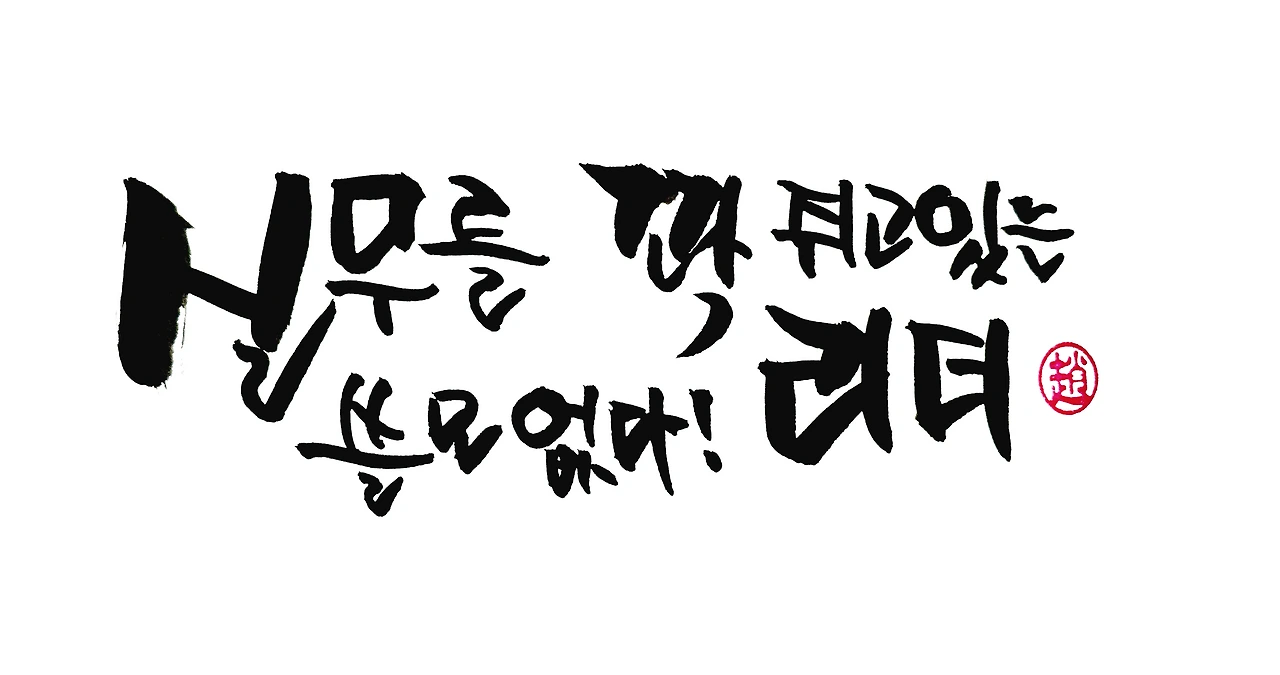 실무를 꽉 쥐고있는
리더
쓸모없다!
趙